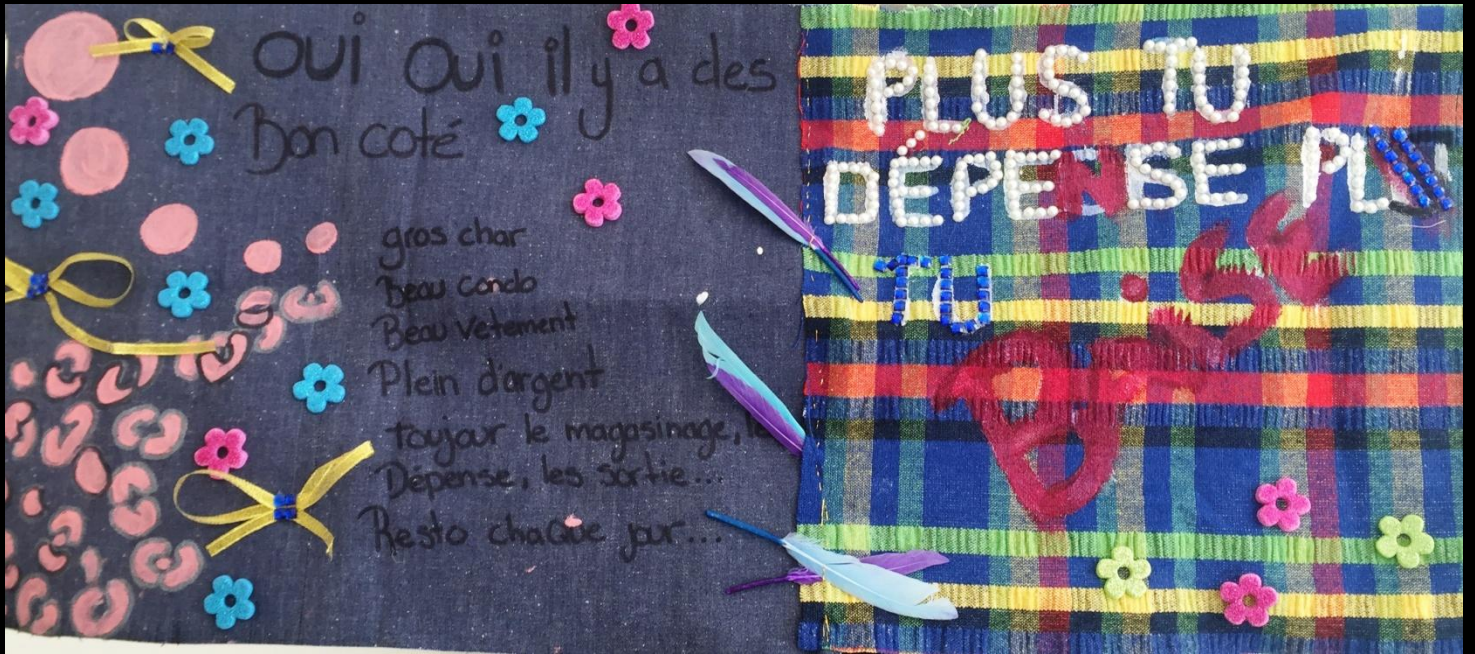 oui oui il y a des
Bon coté
gros char
Beau condo
Beau vetement
Plein d'argent
toujour le magasinage, le
Dépense, les sortie...
Resto chaque jour...
PLUS TU
DÉPENSE PLUS
TU
Brise